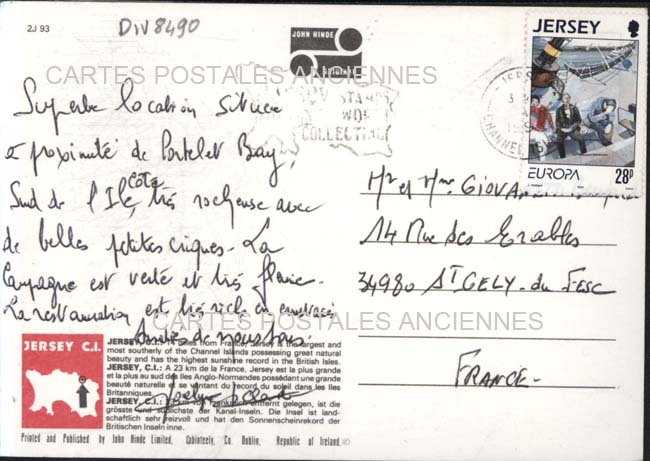 2J 93
DIV 8490
JOHN HINDE
ORIGINAL
JERSEY
EUROPA
28p
STAMPS
COLLECTING
CHANNEL
CARTES POSTALES ANCIENNES
Superbe location située
a proximité de Portelet Bay,
Sud de l'Ile, côte très rocheuse avec
de belles petites criques. La
Campagne est verte et très fleurie.
La restauration est très riche en crustacés
Amitiés à vous tous.
Mr et Mme GIOVAN
14 Rue des Erables
34980 ST GELY-du FESC
FRANCE.
CARTES POSTALES ANCIENNES
JERSEY C.I.
JERSEY, from France, Jersey is the largest and
most southerly of the Channel Islands possessing great natural
beauty and has the highest sunshine record in the British Isles.
JERSEY, C.I.: A 23 km de la France, Jersey est la plus grande
et la plus au sud des Iles Anglo-Normandes possédant une grande
beauté naturelle et se vantant du record du soleil dans les Iles
Britanniques.
JERSEY, Frankreich entfernt gelegen, ist die
grösste und südlichste der Kanal-Inseln. Die Insel ist land-
schaftlich sehr reizvoll und hat den Sonnenscheinrekord der
Britischen Inseln inne.
Printed and Published by John Hinde Limited, Cabinteely, Co. Dublin, Republic of Ireland. ©